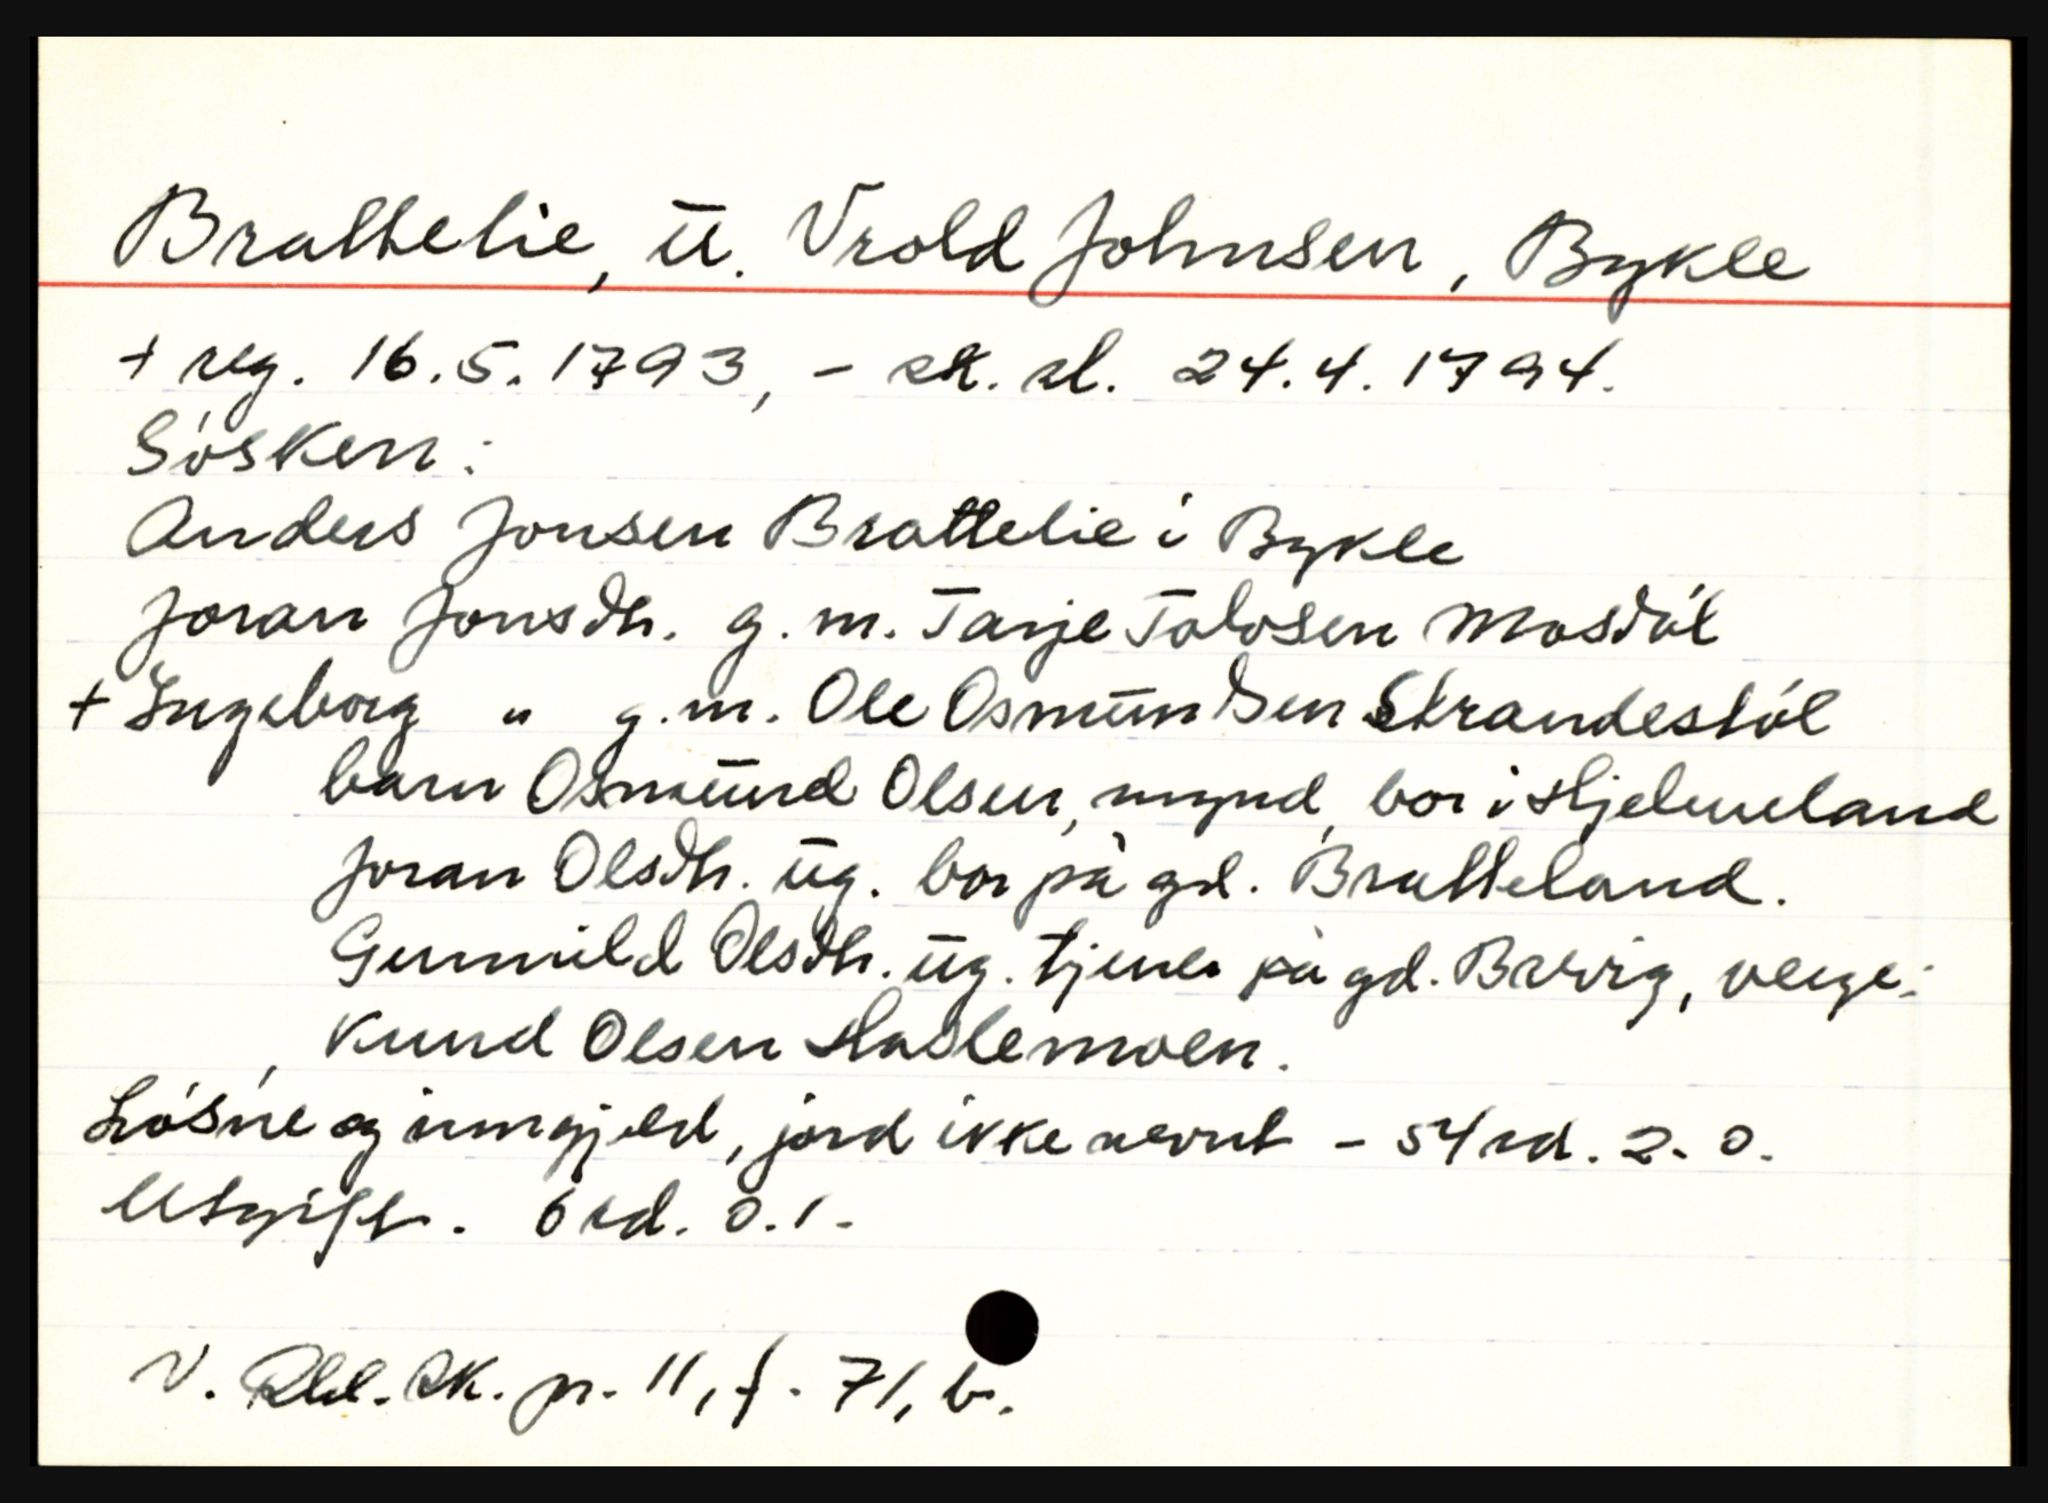 Brattelie, u. Vrold Johnsen, Bykle
+ reg. 16.5.1793, - sk. sl. 24.4.1794.
Søsken:
Anders Jonsen Brattelie i Bykle
Joran Jonsdh. g.m. Tarje Tolvsen Mosdøl
+ Ingeborg " g.m. Ole Osmundsen Strandestøl
barn Osmund Olsen, mynd, bor i Hjelmeland
Joran Olsdh. ug. bor på gd. Bratteland.
Gunnild Olsdh. ug. tjener på gd. Brevig, verge:
Knud Olsen Haslemoen.
Løsøre og inngjeld, jord ikke nevnt - 54 rd. 2. 0.
Utgift. 6 rd. 0.1.
V. Rbl. sk. pr. 11, f. 71, b.